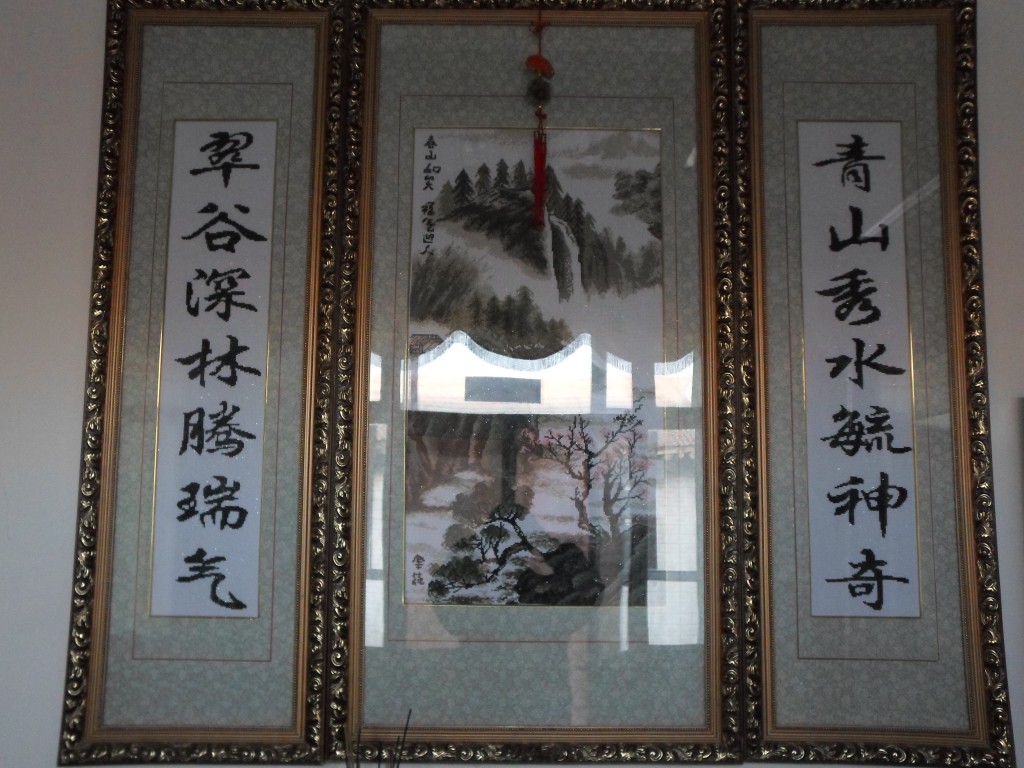 青山秀水毓神奇
春山如笑
翠谷深林腾瑞气